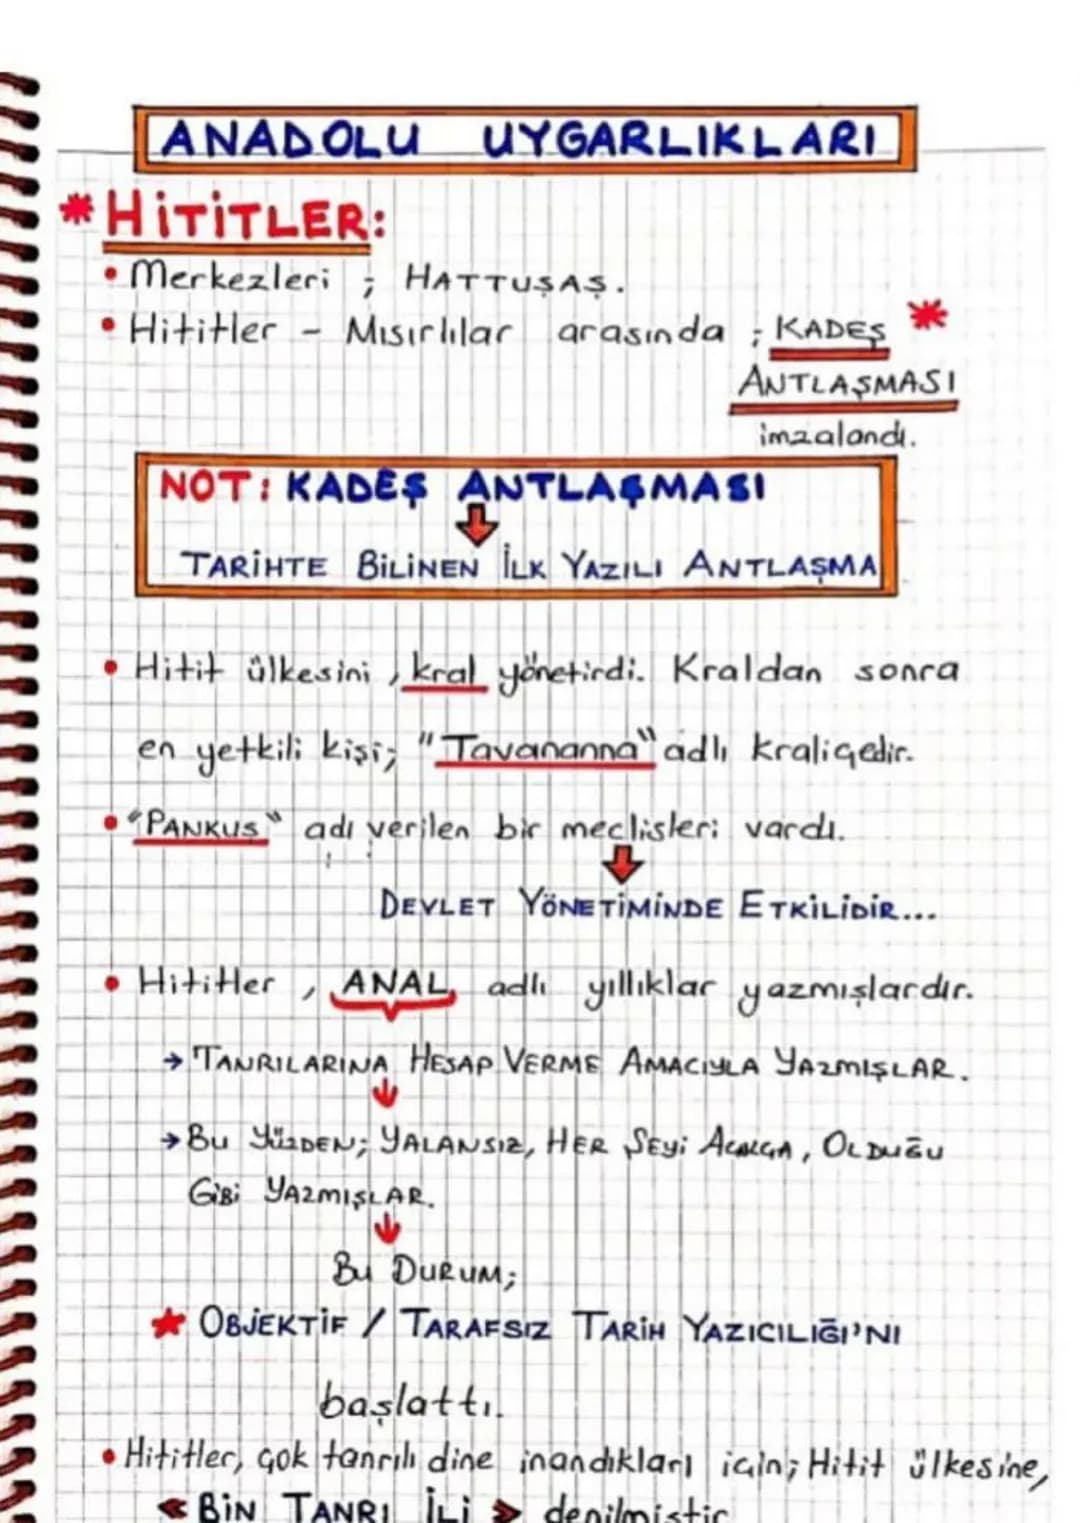 ANADOLU UYGARLIKLARI
* HİTİTLER:
• Merkezleri ; HATTUŞAŞ.
• Hititler - Mısırlılar arasında ; KADEŞ *
ANTLAŞMASI
imzalandı.
NOT: KADEŞ ANTLAŞMASI
↓
TARİHTE BİLİNEN İLK YAZILI ANTLAŞMA
• Hitit ülkesini, kral yönetirdi. Kraldan sonra
en yetkili kişi; "Tavananna" adlı kraliçedir.
• "PANKUŞ" adı verilen bir meclisleri vardı.
↓
DEVLET YÖNETİMİNDE ETKİLİDİR...
• Hititler, ANAL adlı yıllıklar yazmışlardır.
→ TANRILARINA HESAP VERME AMACIYLA YAZMIŞLAR.
↓
→ BU YÜZDEN; YALANSIZ, HER ŞEYİ AÇIKÇA, OLDUĞU
GİBİ YAZMIŞLAR.
↓
BU DURUM;
★ OBJEKTİF / TARAFSIZ TARİH YAZICILIĞI'NI
başlattı.
• Hititler, çok tanrılı dine inandıkları için; Hitit ülkesine,
« BİN TANRI İLİ » denilmiştir